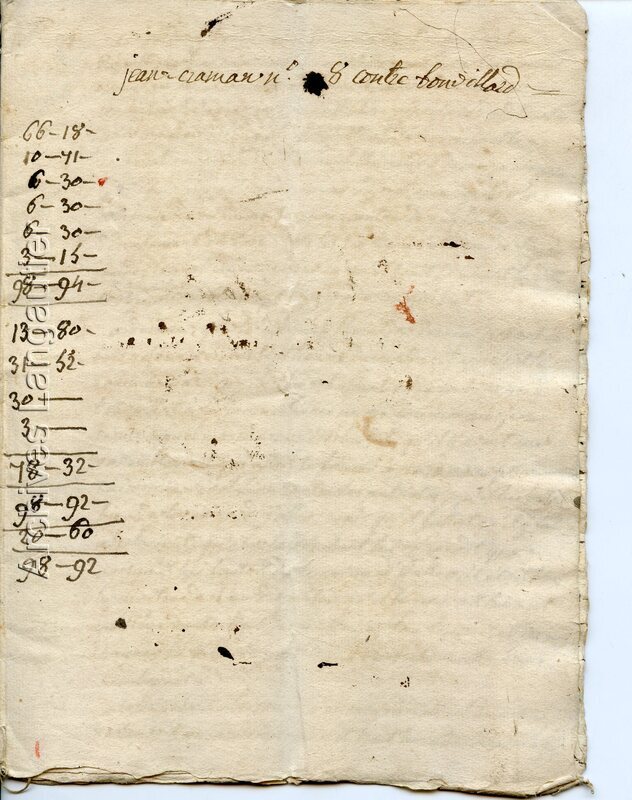 jean cramar n.° 8 contre bouvillard
66-18-
10-71-
6-30-
6-30-
6-30-
3-15-
98-94-
13-80-
31-52-
30-
3-
78-32-
98-92-
20-60
98-92
Archives Langartier